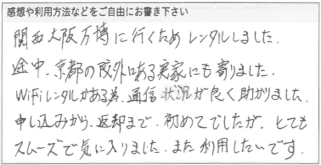 感想や利用方法などをご自由にお書き下さい
関西大阪万博に行くためレンタルしました。
途中、京都の郊外にある実家にも寄りました。
WiFiレンタルがある為、通信状況が良く助かりました。
申し込みから、返却まで、初めてでしたが、とても
スムーズで気に入りました。また利用したいです。